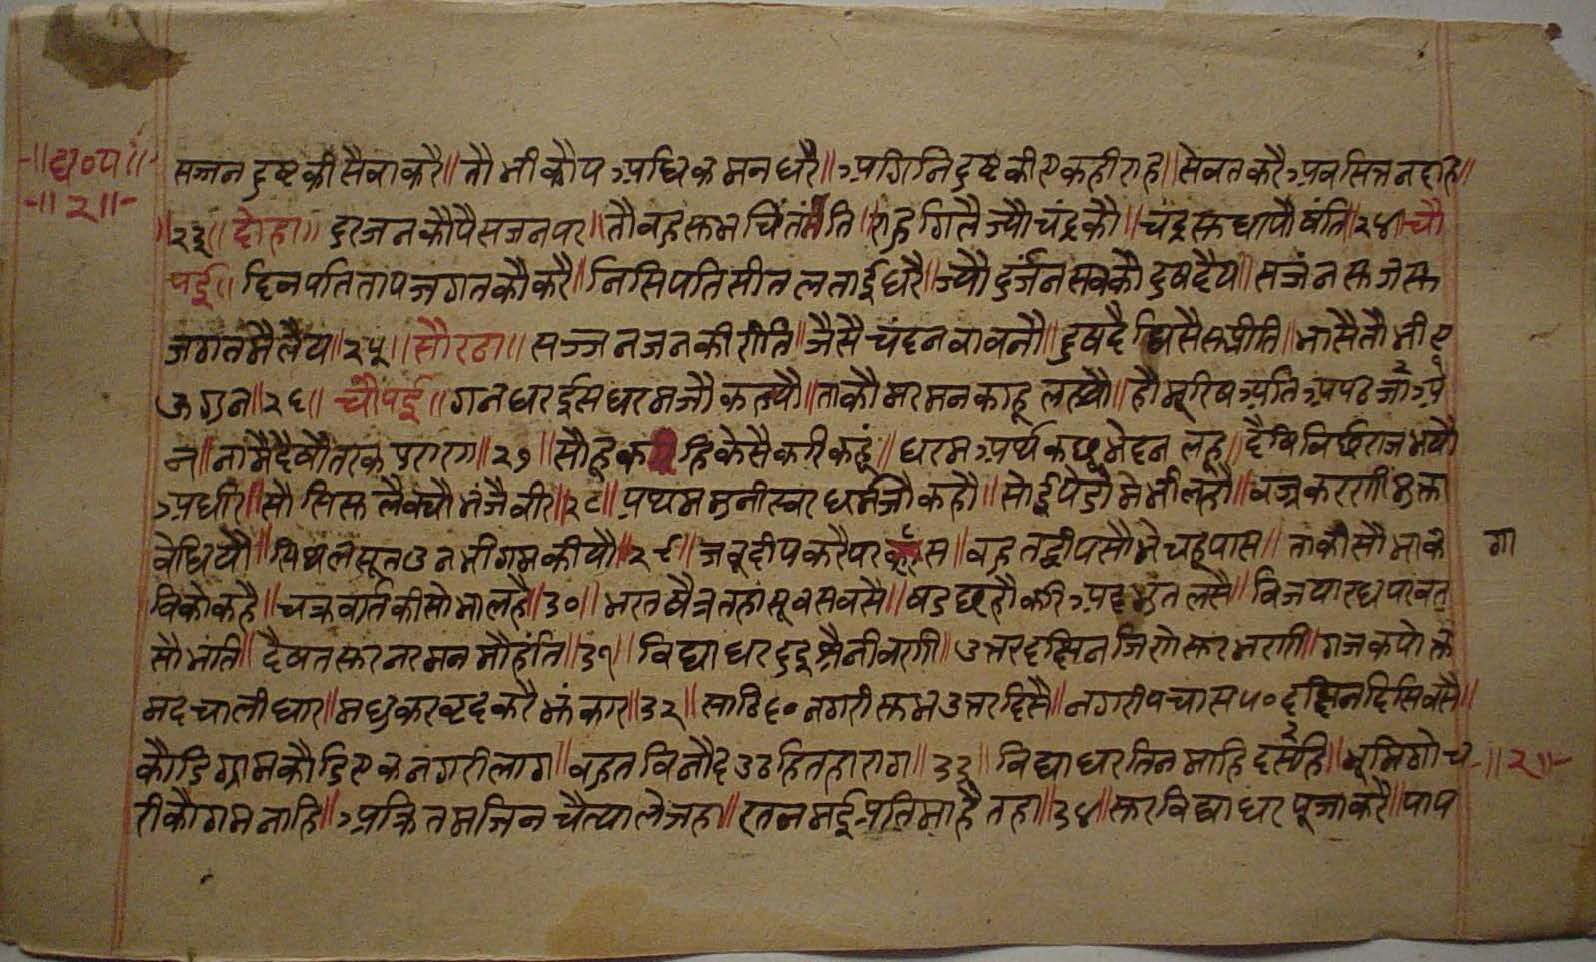 ॥ध०प॥ सज्जन दुष्ट की सेवा करै॥ तौ भी कौप अधिक मन धरै॥ अगिनि दुष्ट की एक ही राह॥ सेवत करै अवसि तन दाह॥
॥२॥ ॥२३॥ दोहा॥ दुरजन कौपै सजन पर॥ तौ वह सुभ चिंतंति॥ राहु गिलै ज्यौ चंद्र कौ॥ चंद्र सुधा पौषंति॥२४॥ चौ
पई॥ दिनपति ताप जगत कौ करै॥ निसिपति सीतलताई धरै॥ ज्यौ दुर्जन सबकौ दुष दैय॥ सज्जंन सुजसु
जगत मै लैय॥२५॥ सौरठा॥ सज्जन जन की रीति॥ जैसै चंदन बावनौ॥ दुष दै सुप्रीति॥ तौ भी ए
गुन॥२६॥ चौपई॥ गनधर ईस धरम जौ कत्थ्यौ॥ ताकौ मरम न काहू लह्यौ॥ हौ मूरिष अति अपढ अ
न॥ २७॥ सौ हू कहि कैसै करि कहूं॥ धरम अर्थ कछू भेद न लहू॥ भयौ
अधीर॥ सौ भंजै वीर॥२८॥ प्रथम मुनीस्वर धर्म जौ कहौ॥ सोई पैडौ मे भी लहौ॥ वज्र कर
वेधियौ॥ सिथल सूत उन भी गम कीयौ॥२९॥ जंबूदीप करै परकास॥ बहुत द्वीप सौभे चहूपास॥ ताकी सौभा क गा
वि को कहै॥ चक्रवर्ति की सोभा लहै॥३०॥ भरत षैत्र तहां सूवस वसै॥ षड छहौ करि अदभुत लसै॥ विजयारध परवत
सौ भांति॥ दैषत सुर नर मन मौहंति॥३१॥ विद्याधर दुइ श्रैनी वरगी॥ उत्तर दक्षिन भरगी॥ गज कपोल
मद चाली धार॥ मधुकर वृंद करै झंकार॥३२॥ साठि ६० नगरी सुभ उत्तर दिसै॥ नगरी पचास ५० दक्षिन दिसि वसै॥
कौडि ग्राम कौडि एक नगरी लाग॥ बहुत विनौद उठहि तहा राग॥३३॥ विद्याधर तिन माहि वसेहि॥ भूमिगोच ॥२॥
री कौ गम नाहि॥ अक्रितम जिन चैत्याले जहा॥ रतनमई प्रतिमा है तहा॥३४॥ सुर विद्याधर पूजा करै॥ पाप